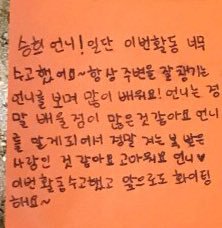 승희 언니! 일단 이번활동 너무
수고했어요~ 항상 주변을 잘 챙기는
언니를 보며 많이 배워요! 언니는 정
말 배울 점이 많은것같아요 언니
를 알게 되어서 정말 저는 복 받은
사람인 것 같아요 고마워요 언니♥
이번 활동 수고했고 앞으로도 화이팅
해요~